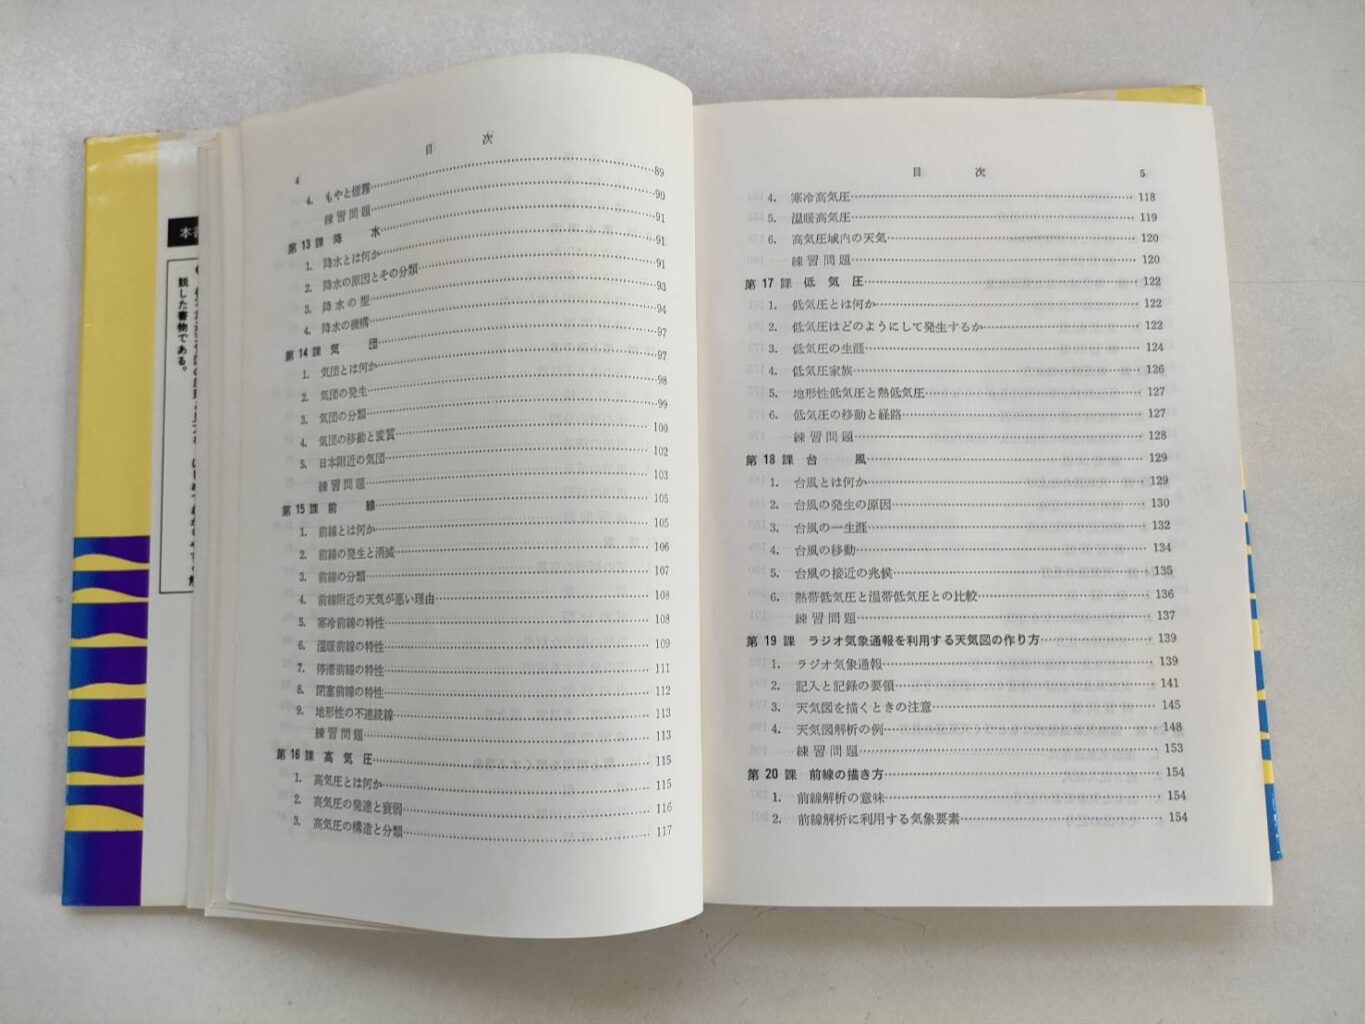 本
説した書物である。
目 次
4
4. もやと煙霧 89
練習問題 90
第13課 降 水 91
1. 降水とは何か 91
2. 降水の原因とその分類 91
3. 降水の型 93
4. 降水の機構 94
第14課 気 団 97
1. 気団とは何か 97
2. 気団の発生 98
3. 気団の分類 99
4. 気団の移動と変質 100
5. 日本附近の気団 102
練習問題 103
第15課 前 線 105
1. 前線とは何か 105
2. 前線の発生と消滅 106
3. 前線の分類 107
4. 前線附近の天気が悪い理由 108
5. 寒冷前線の特性 108
6. 温暖前線の特性 109
7. 停滞前線の特性 111
8. 閉塞前線の特性 112
9. 地形性の不連続線 113
練習問題 113
第16課 高気圧 115
1. 高気圧とは何か 115
2. 高気圧の発達と衰弱 116
3. 高気圧の構造と分類 117
目 次 5
4. 寒冷高気圧 118
5. 温暖高気圧 119
6. 高気圧域内の天気 120
練習問題 120
第17課 低気圧 122
1. 低気圧とは何か 122
2. 低気圧はどのようにして発生するか 122
3. 低気圧の生涯 124
4. 低気圧家族 126
5. 地形性低気圧と熱低気圧 127
6. 低気圧の移動と経路 127
練習問題 128
第18課 台 風 129
1. 台風とは何か 129
2. 台風の発生の原因 130
3. 台風の一生涯 132
4. 台風の移動 134
5. 台風の接近の兆候 135
6. 熱帯低気圧と温帯低気圧との比較 136
練習問題 137
第19課 ラジオ気象通報を利用する天気図の作り方 139
1. ラジオ気象通報 139
2. 記入と記録の要領 141
3. 天気図を描くときの注意 145
4. 天気図解析の例 148
練習問題 153
第20課 前線の描き方 154
1. 前線解析の意味 154
2. 前線解析に利用する気象要素 154